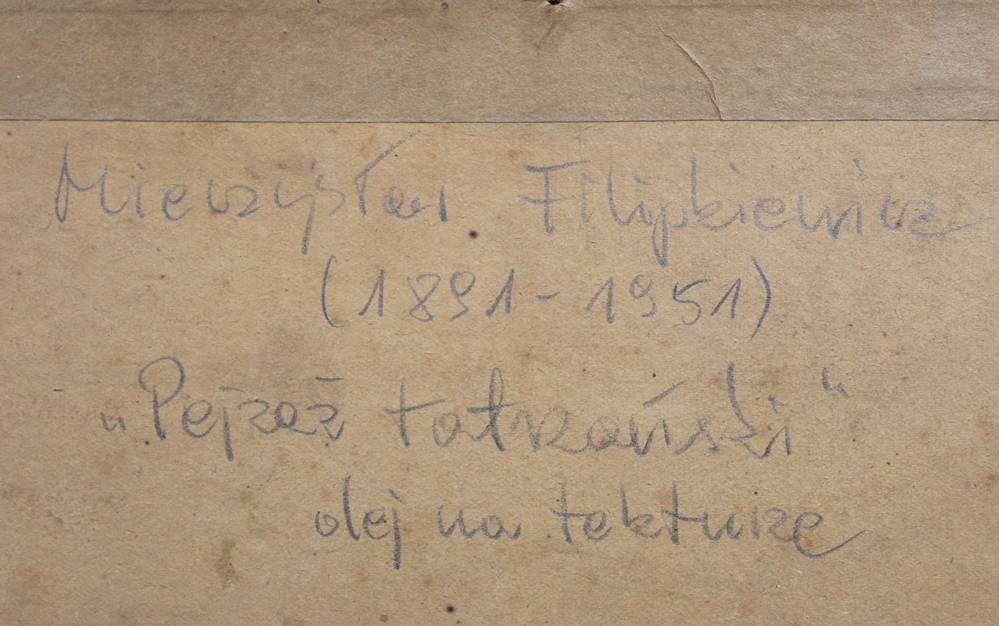 Mieczysław Filipkiewicz
(1891-1951)
„Pejzaż tatrzański"
olej na tekturze